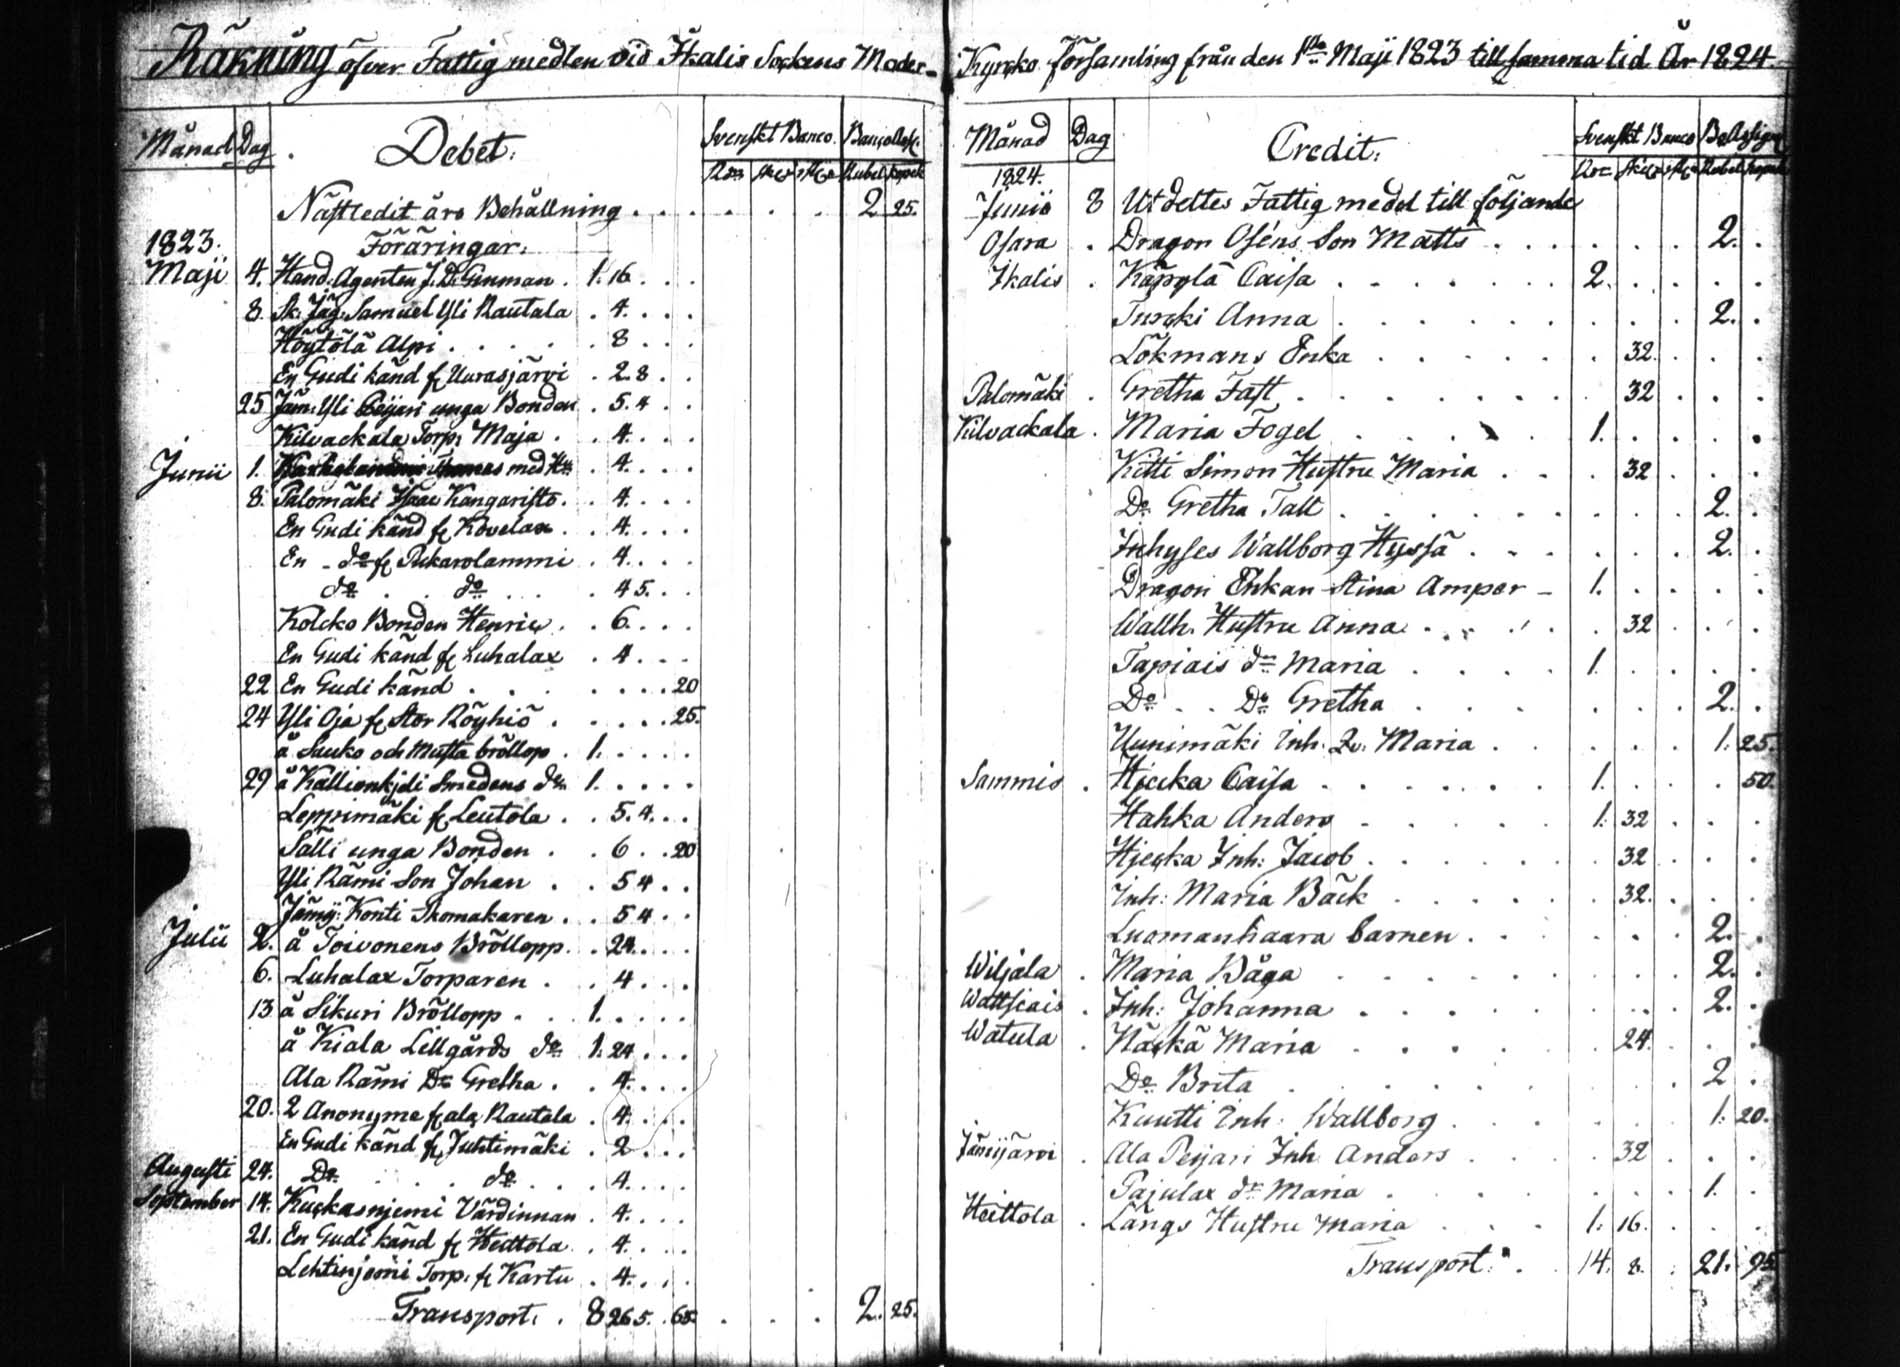 Räkning öfver Fattig medlen vid Ikalis Sockens Moder-
Månad Dag Debet: Svenskt Banco. Banco
Rdr Rubel kopek
Nästledit års Behållning . . . . . . 2 25.
1823. Föräringar:
Maji 4. Hand. Agenten J. D. Ginman . 1. 16 . . .
8. Sk: Jäg: Samuel Yli Rautala . 4. . . .
Höytölä Alpi . . . . . 8 . . .
En Gudi känd fr Uurasjärvi . 2. 8 . .
25 Jäm: Yli Peijari unga Bonden . 5. 4 . .
Kilvackala Torp. Maja . . 4. . . .
Junii 1. Thomas med . 4. . . .
8. Palomäki Isaac Kangaristo . . 4. . . .
En Gudi känd fr Kovelax . . 4. . . .
En - do fr . 4. . . .
do . . do . . . . 4 5. . .
Kolcko Bonden Henric . . 6. . . .
En Gudi känd fr Luhalax . 4 . . .
22 En Gudi känd . . . . . . . . 20
24 Yli Oja fr Stor Röyhiö . . . . . 25.
å Sauko och Musta bröllop . 1. . . . .
29 å Smedens do 1. . . . .
Leppimäki fr Leutola . . 5. 4. . .
Sälli unga Bonden . . 6 . . 20
Yli Rämi Son Johan . . 5 4 . .
Jämij: Konti Skomakaren . . 5 4 . .
Julii 2. å Toivonens Bröllopp . . 24. . . .
6. Luhalax Torparen . . 4 . . .
13 å Sikuri Bröllopp . . 1. . . . .
å Kiala Lillgårds do 1. 24 . . .
Ala Rämi Dr Gretha . . 4. . . .
20. 2 Anonyme fr ala Rautala . 4. . . .
En Gudi känd fr Juhtimäki . 2 . . .
Augusti 24. Do . . . do . . . 4. . . .
September 14. Kuckasnjemi Värdinnan . 4. . . .
21. En Gudi känd fr Heittola . . 4. . . .
Lehtinjemi Torp. fr Kartu . 4. . . .
Transport. . 8 26 5. . 65 . . . . 2. 25.
Kyrcko församling från den 1sta Maji 1823 till samma tid År 1824
Månad Dag Credit: Svenskt Banco
1824. Rubel kopek
Junii 8 Utdeltes Fattig medel till följande
Osara . Dragon Oséns Son Matts . . . . . . 2. .
Ikalis . Käpylä Caisa . . . . . . . 2. . . . .
Turcki Anna . . . . . . . . . . 2. .
Lökmans Enka . . . . . . . 32. . . .
Palomäki . Gretha Fast . . . . . . . . 32 . . .
Kilvackala . Maria Fogel . . . . . 1. . . . .
Kitti Simon Hustru Maria . . . 32 . . .
Do Gretha Talt . . . . . . . . . 2. .
Inhyses Wallborg Hyssä . . . . . . . 2. .
Dragon Enkan Stina Amper - 1. . . . .
Wallh. Hustru Anna . . . . . . 32 . . .
Tapiais do Maria . . . . 1. . . . .
Do . . Do Gretha . . . . . . . 2. .
Uunimäki Inh. Maria . . . . . . 1. 25.
Sammis . Hiecka Caisa . . . . . . 1. . . . 50.
Hahka Anders . . . . . 1. 32 . . .
Hjecka Inh: Jacob . . . . . . . 32 . . .
Inh: Maria Bäck . . . . . . 32. . . .
Luomanhaara barnen . . . . . . 2. .
Wiljala . Maria Båga . . . . . . . . 2. .
Wattsiais . Inh: Johanna . . . . . . . . 2. .
Watula . Käckä Maria . . . . . . 24. . . .
Do Brita . . . . . . . . 2 .
Kuutti Inh: Wallborg . . . . . . 1. 20.
Jämijärvi . Ala Peijari Inh. Anders . . . . 32 . . .
Pajulax do Maria . . . . . . . . 1. .
Heittola . Långs Hustru Maria . . . 1. 16. . . .
Transport. . . 14. 8. . 21. 95